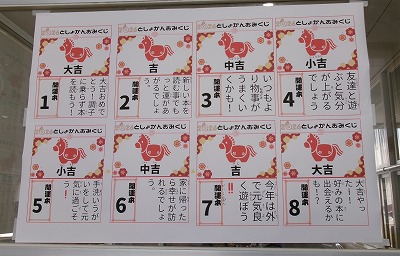 としょかんおみくじ
大吉
開運本
1
大吉おめで
とう！調子
に乗らず本
を読もう！
としょかんおみくじ
吉
開運本
2
新しい本を
読む事でも
っと運があ
がるでしょ
う。
としょかんおみくじ
中吉
開運本
3
いつもよ
り物事が
うまくい
くかも！
としょかんおみくじ
小吉
開運本
4
友達と遊
ぶと気分
が上がる
でしょう
としょかんおみくじ
小吉
開運本
5
手洗いうが
いをして元
気に過ごそ
う！
としょかんおみくじ
中吉
開運本
6
家に帰った
ら幸せが訪
れるでしょ
う。
としょかんおみくじ
吉
開運本
7
今年は外
で元気良
く遊ぼう
‼
としょかんおみくじ
大吉
開運本
8
大吉やっ
た！
好みの本に
出会えるか
も！？